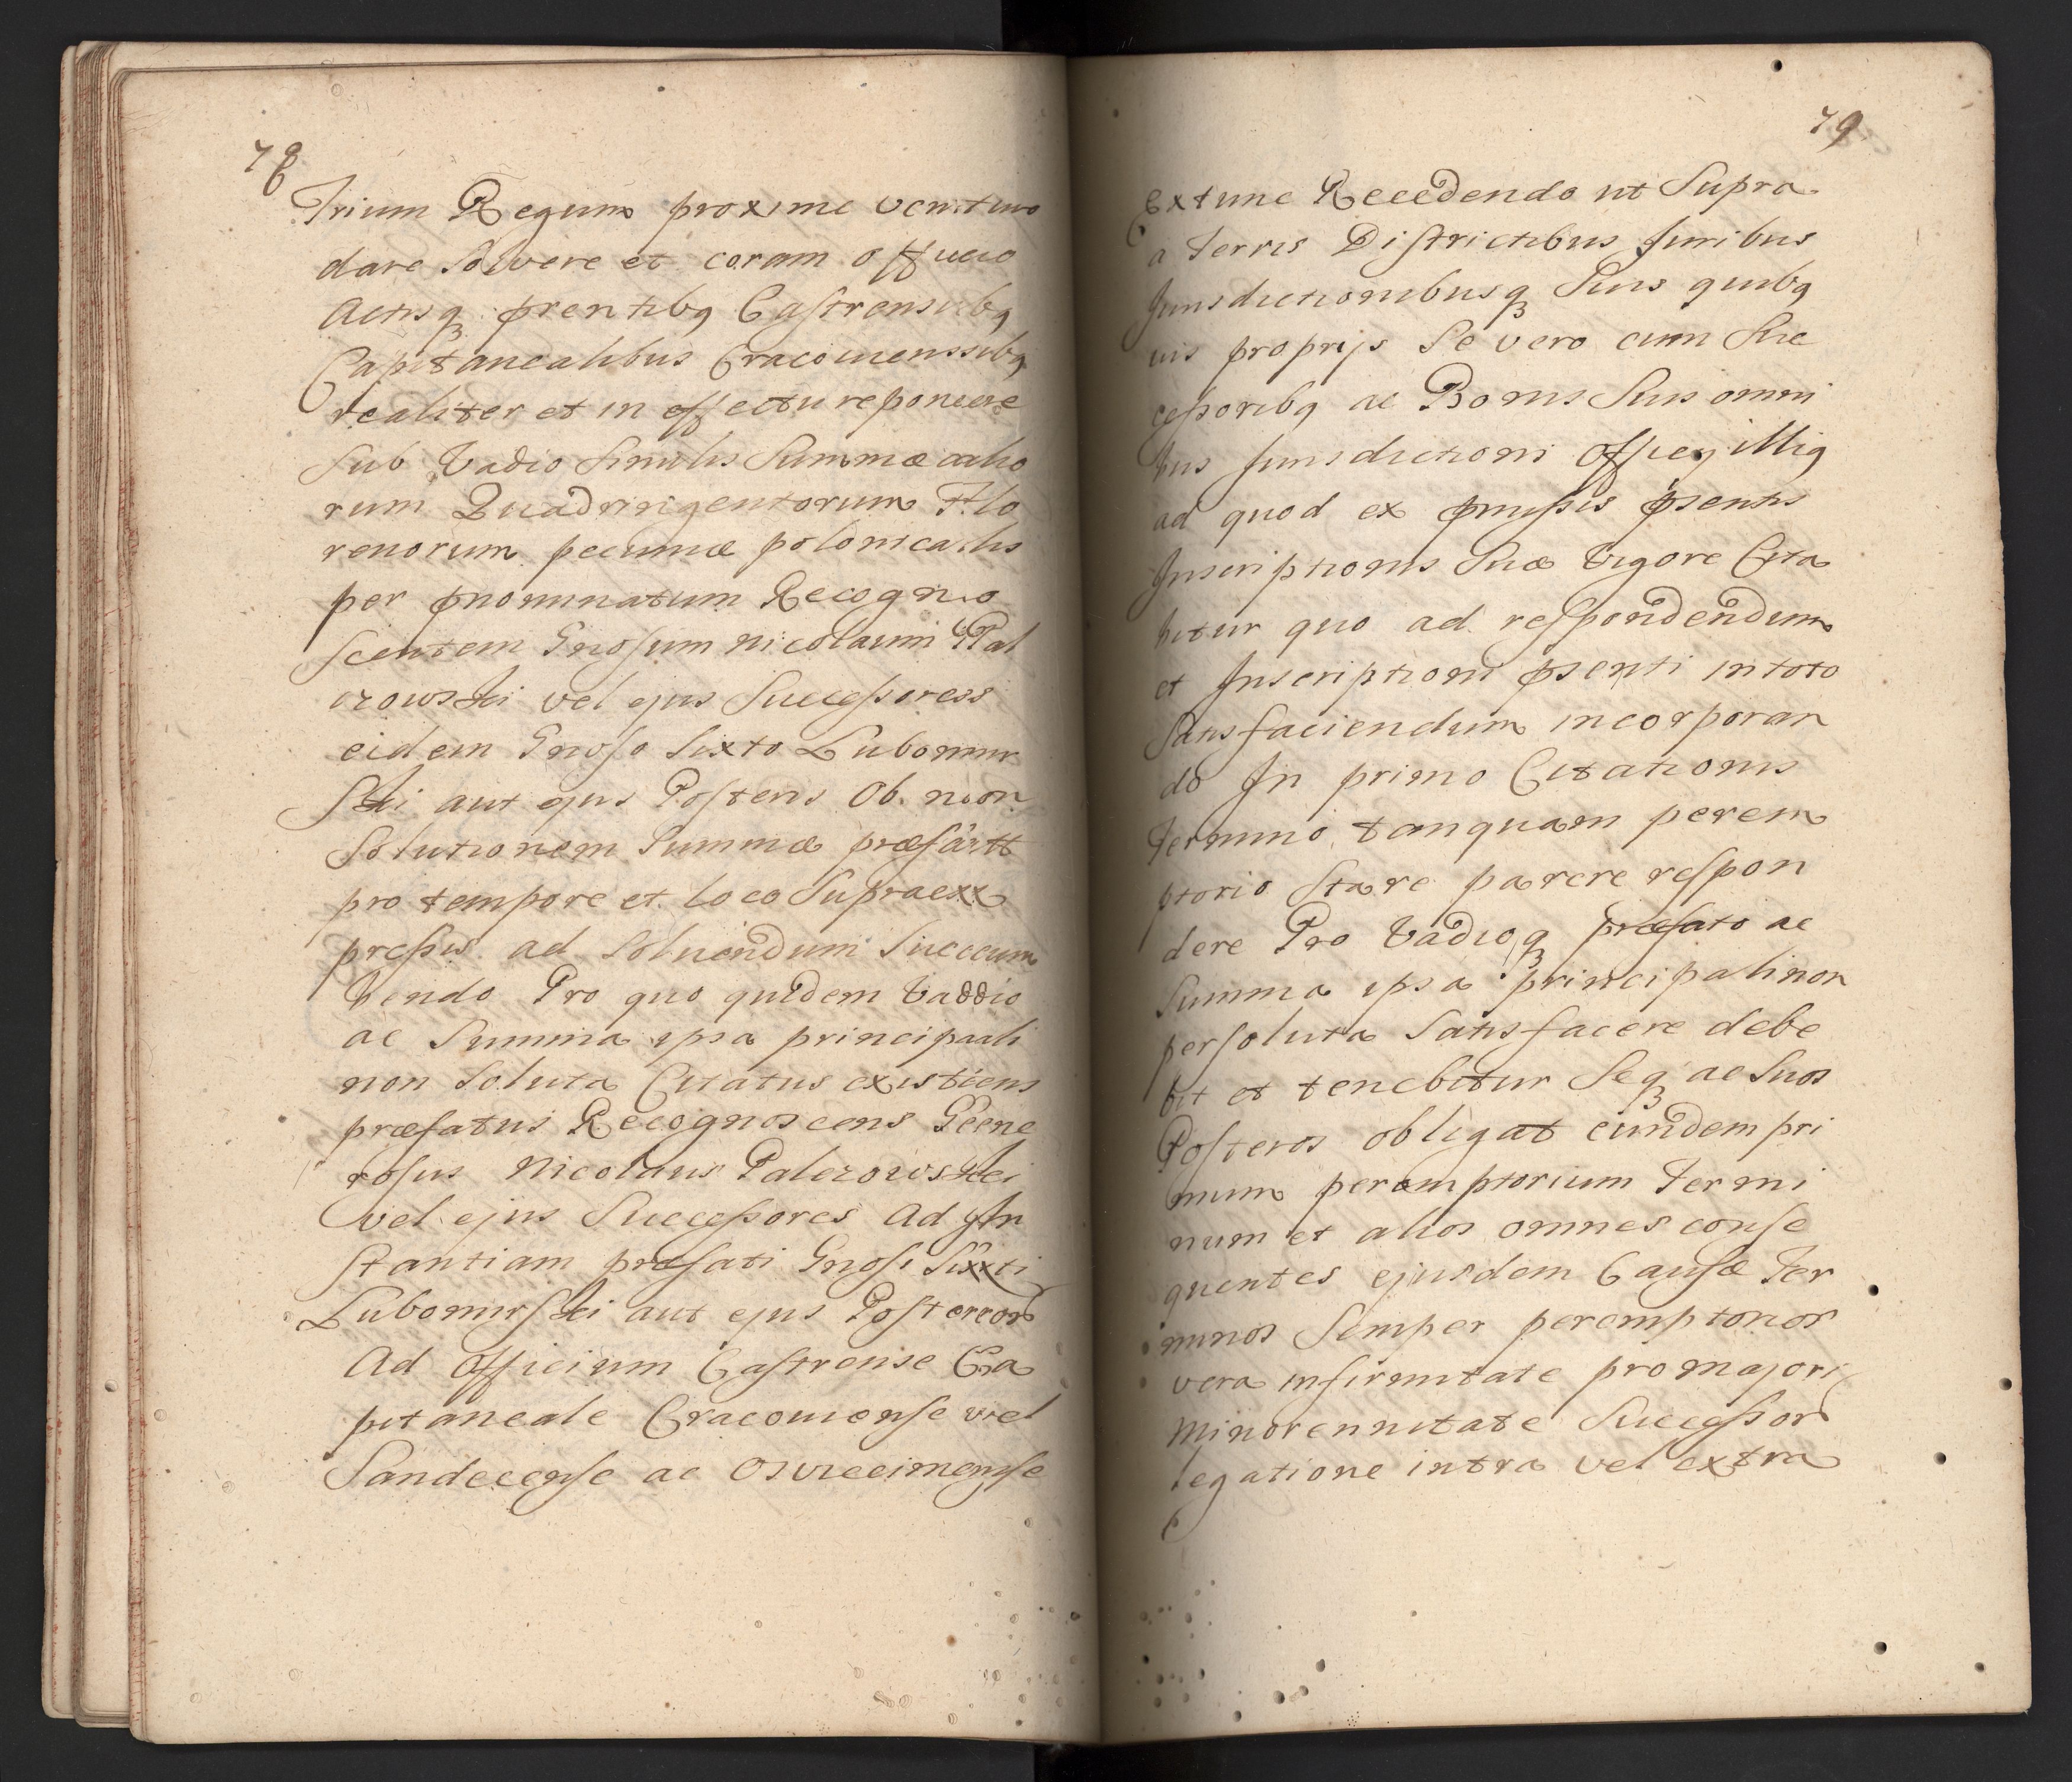 78
Trium Regum proxime venturo
dare Solvere et coram officio
Actisq₃ prentibꝯ Castrensibꝯ
Capitanealibus Cracoviensibꝯ
realiter et in effectu reponere
Sub Vadio Similis Summæ
rum Quadringentorum Flo
renorum pecuniæ polonicalis
per pnominatum Recogno
scentem Gnosum Nicolaum Pal
czowski vel ejus Successoress
eidem Gnoso Sixto Lubomir
Ski aut ejus Posteris Ob. non
Solutionem Summæ præfatt
pro tempore et loco Supraex
pressis ad Solvendum Succum
bendo Pro quo quidem Vaddio
ac Summa ipsa principaali
non Soluta Citatus existens
præfatus Recognoscens Gene
rosus Nicolaus Palczowski
vel ejus Successores Ad In
stantiam præfati Gnosi Sixti
Lubomirski aut ejus Posteror
Ad Officium Castrense Ca
pitaneale Cracoviense vel
Sandecense ac Osviecimense
79
Extunc Recedendo ut Supra
a Terris Districtibus Juribus
Jurisdictionibusq₃ Suis quibꝯ
vis proprijs Se vero cum Suc
cessoribꝯ ac Bonis Suis omni
bus Jurisdictioni Offıcij illiꝯ
ad quod ex pmissis psentis
Inscriptionis Suæ Vigore Cita
bitur quo ad respondendum
et Inscriptioni psenti in toto
Satisfaciendum incorporan
do In primo Citationis
Termino tanquam perem
ptorio Stare parere respon
dere Pro Vadioq₃ præfato ac
Summa ipsa principali non
persoluta Satisfacere debe
bit et tenebitur Seq₃ ac Suos
Posteros obligat eundem pri
mum peremptorium Termi
num et alios omnes conse
quentes ejusdem Causæ Ter
minos Semper peremptorios
vera infirmitate pro majori
Minorennitate Successor
legatione intra vel extra